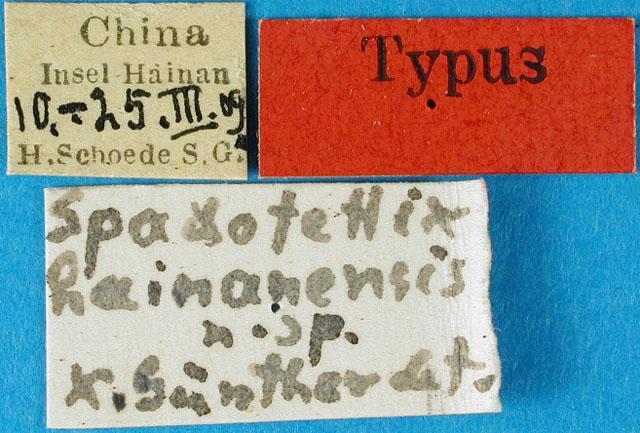 China
Insel Hainan
10.-25.III.09
H. Schoede S. G.
Typus
Spadotettix
hainanensis
n. sp.
K. Günther det.